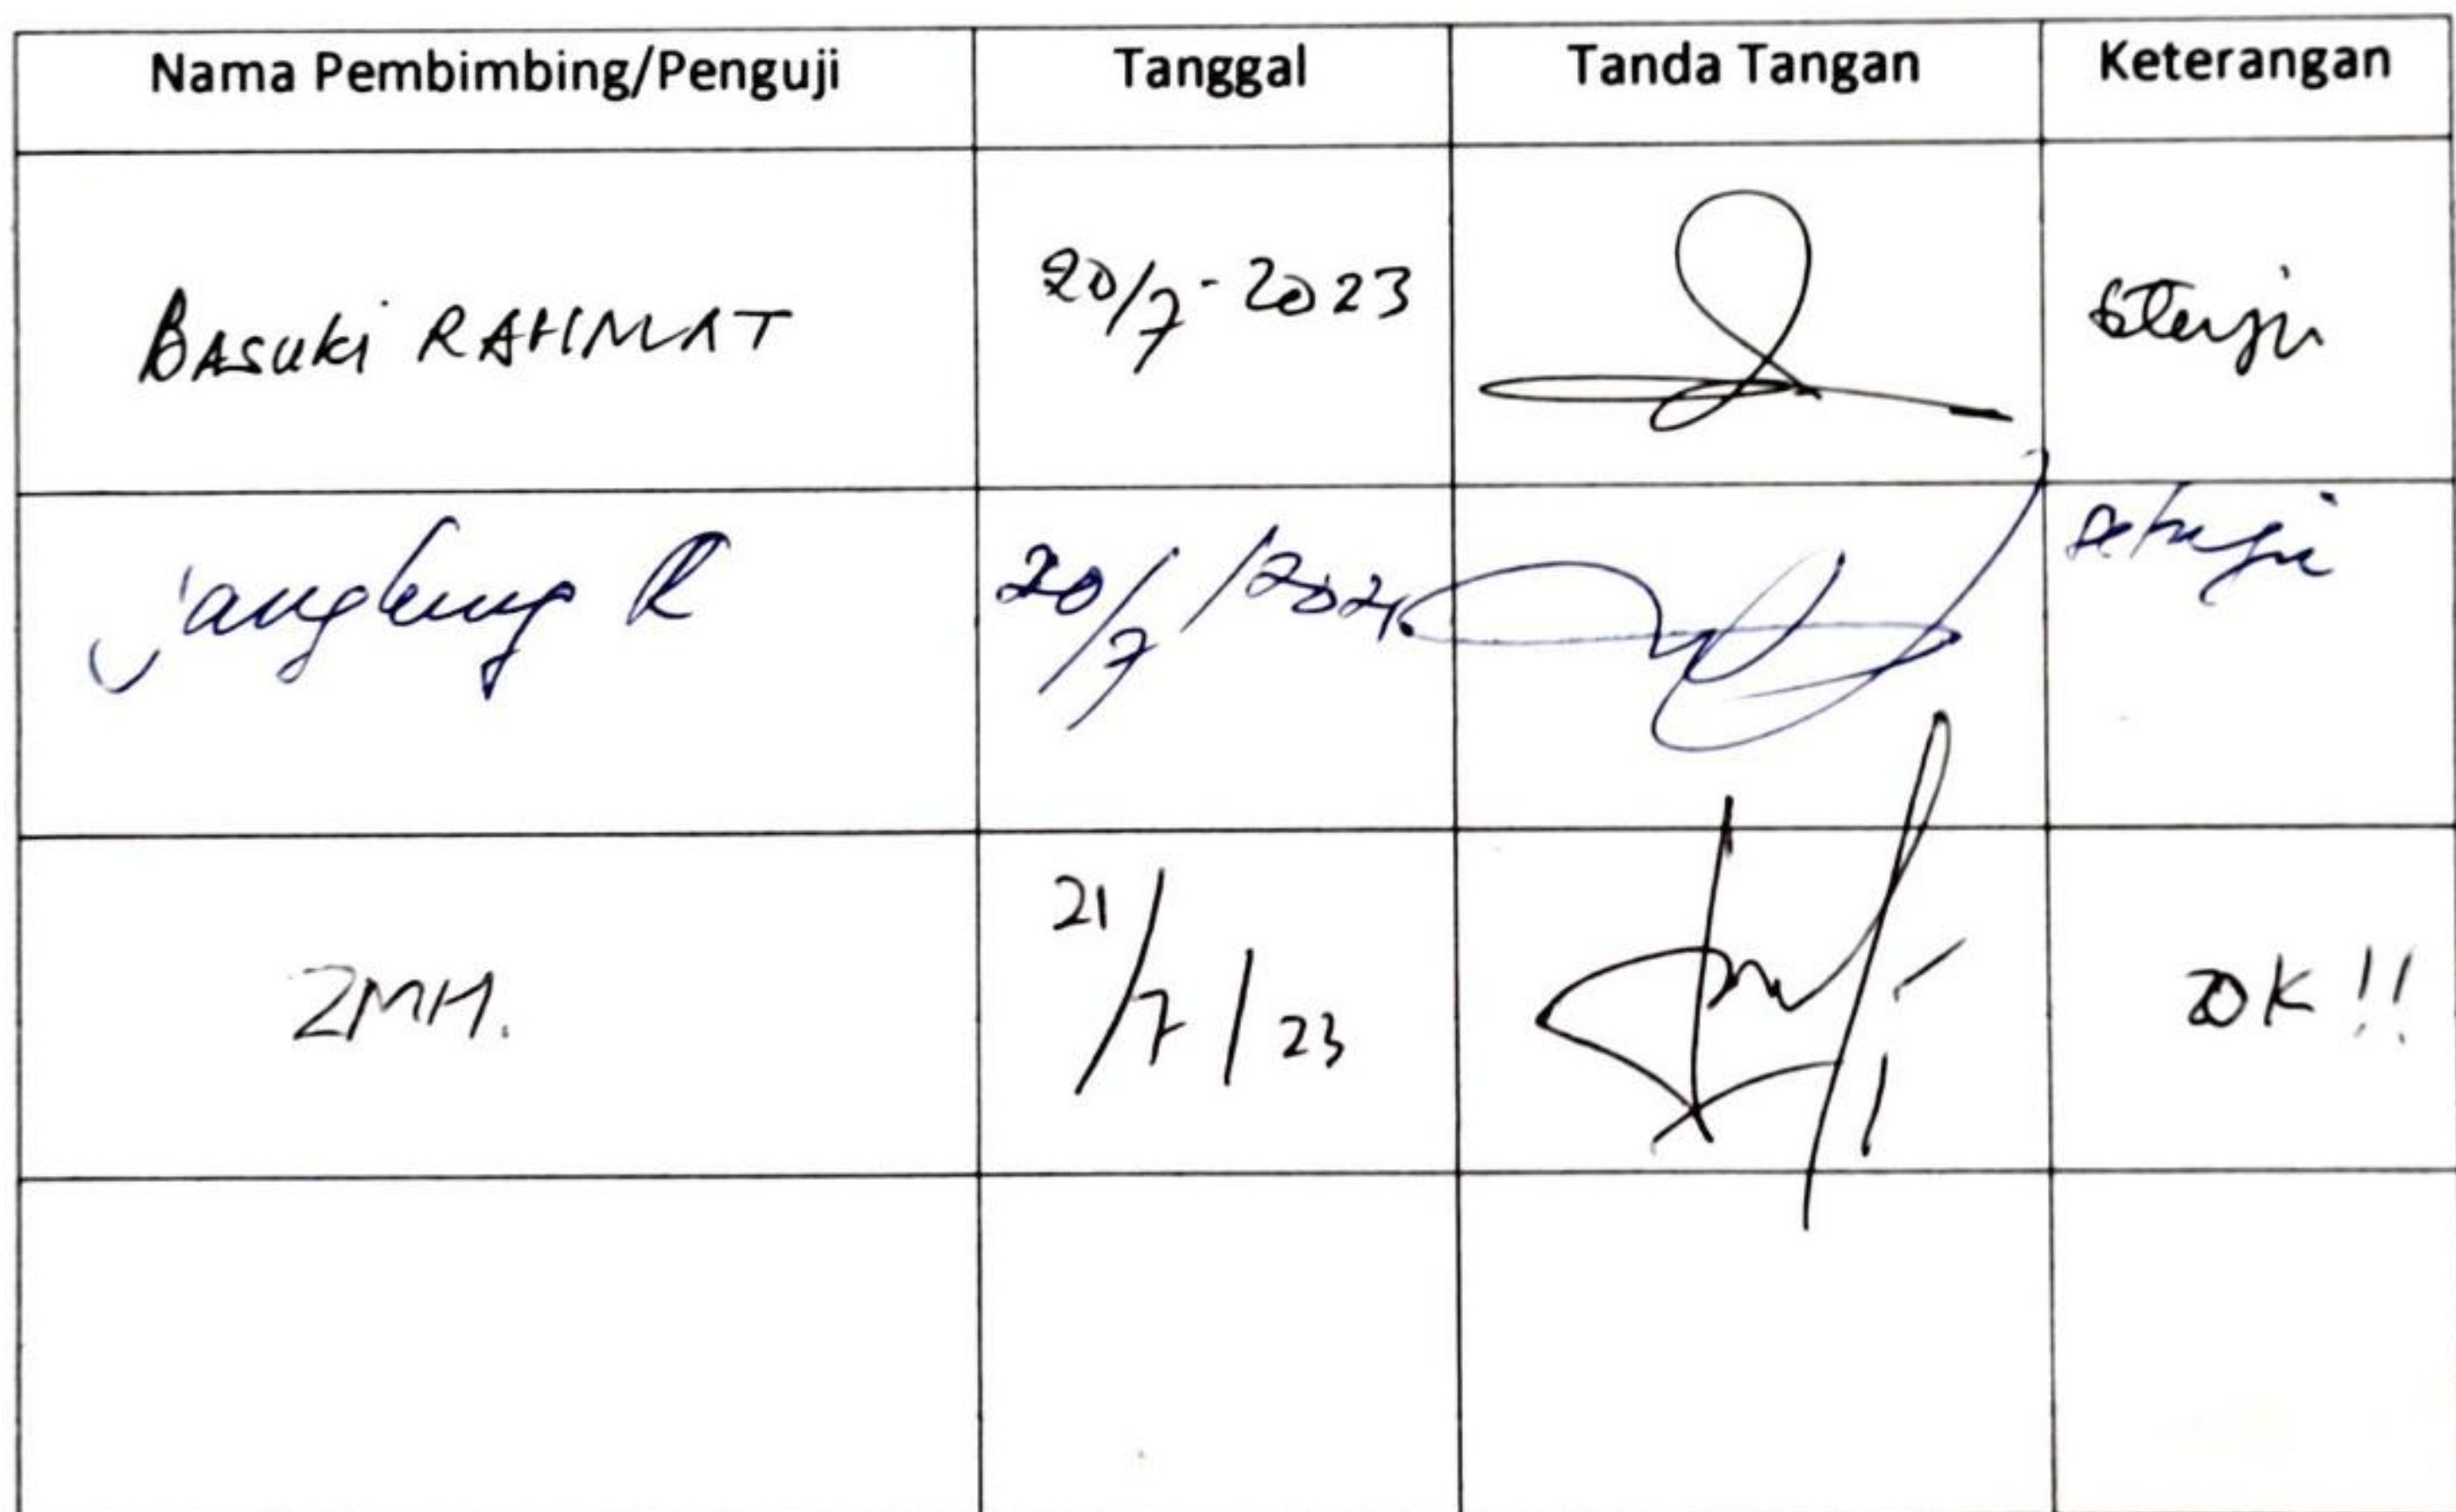 Nama Pembimbing/Penguji Tanggal Tanda Tangan Keterangan
BASUKI RAHMAT 20/7-2023 setuju
Jangkung R 20/7/202 setuju
ZMH. 21/7/23 OK !!